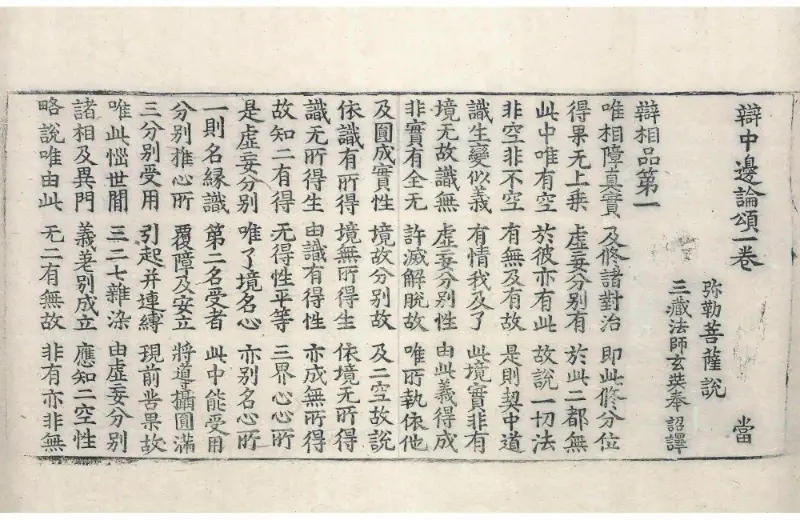 辯中邊論頌一卷 當
弥勒菩薩說
三藏法師玄奘奉 詔譯
辯相品第一
唯相障真實 及修諸對治 即此修分位
得果无上乘 虛妄分別有 於此二都無
此中唯有空 於彼亦有此 故說一切法
非空非不空 有無及有故 是則契中道
識生變似義 有情我及了 此境實非有
境无故識無 虛妄分別性 由此義得成
非實有全无 許滅解脫故 唯所執依他
及圓成實性 境故分別故 及二空故說
依識有所得 境無所得生 依境无所得
識无所得生 由識有得性 亦成無所得
故知二有得 无得性平等 三界心心所
是虛妄分別 唯了境名心 亦別名心所
一則名緣識 第二名受者 此中能受用
分別推心所 覆障及安立 將導攝圓滿
三分別受用 引起并連縛 現前苦果故
唯此惱世間 三二七雜染 由虛妄分別
諸相及異門 義差別成立 應知二空性
略說唯由此 无二有無故 非有亦非無